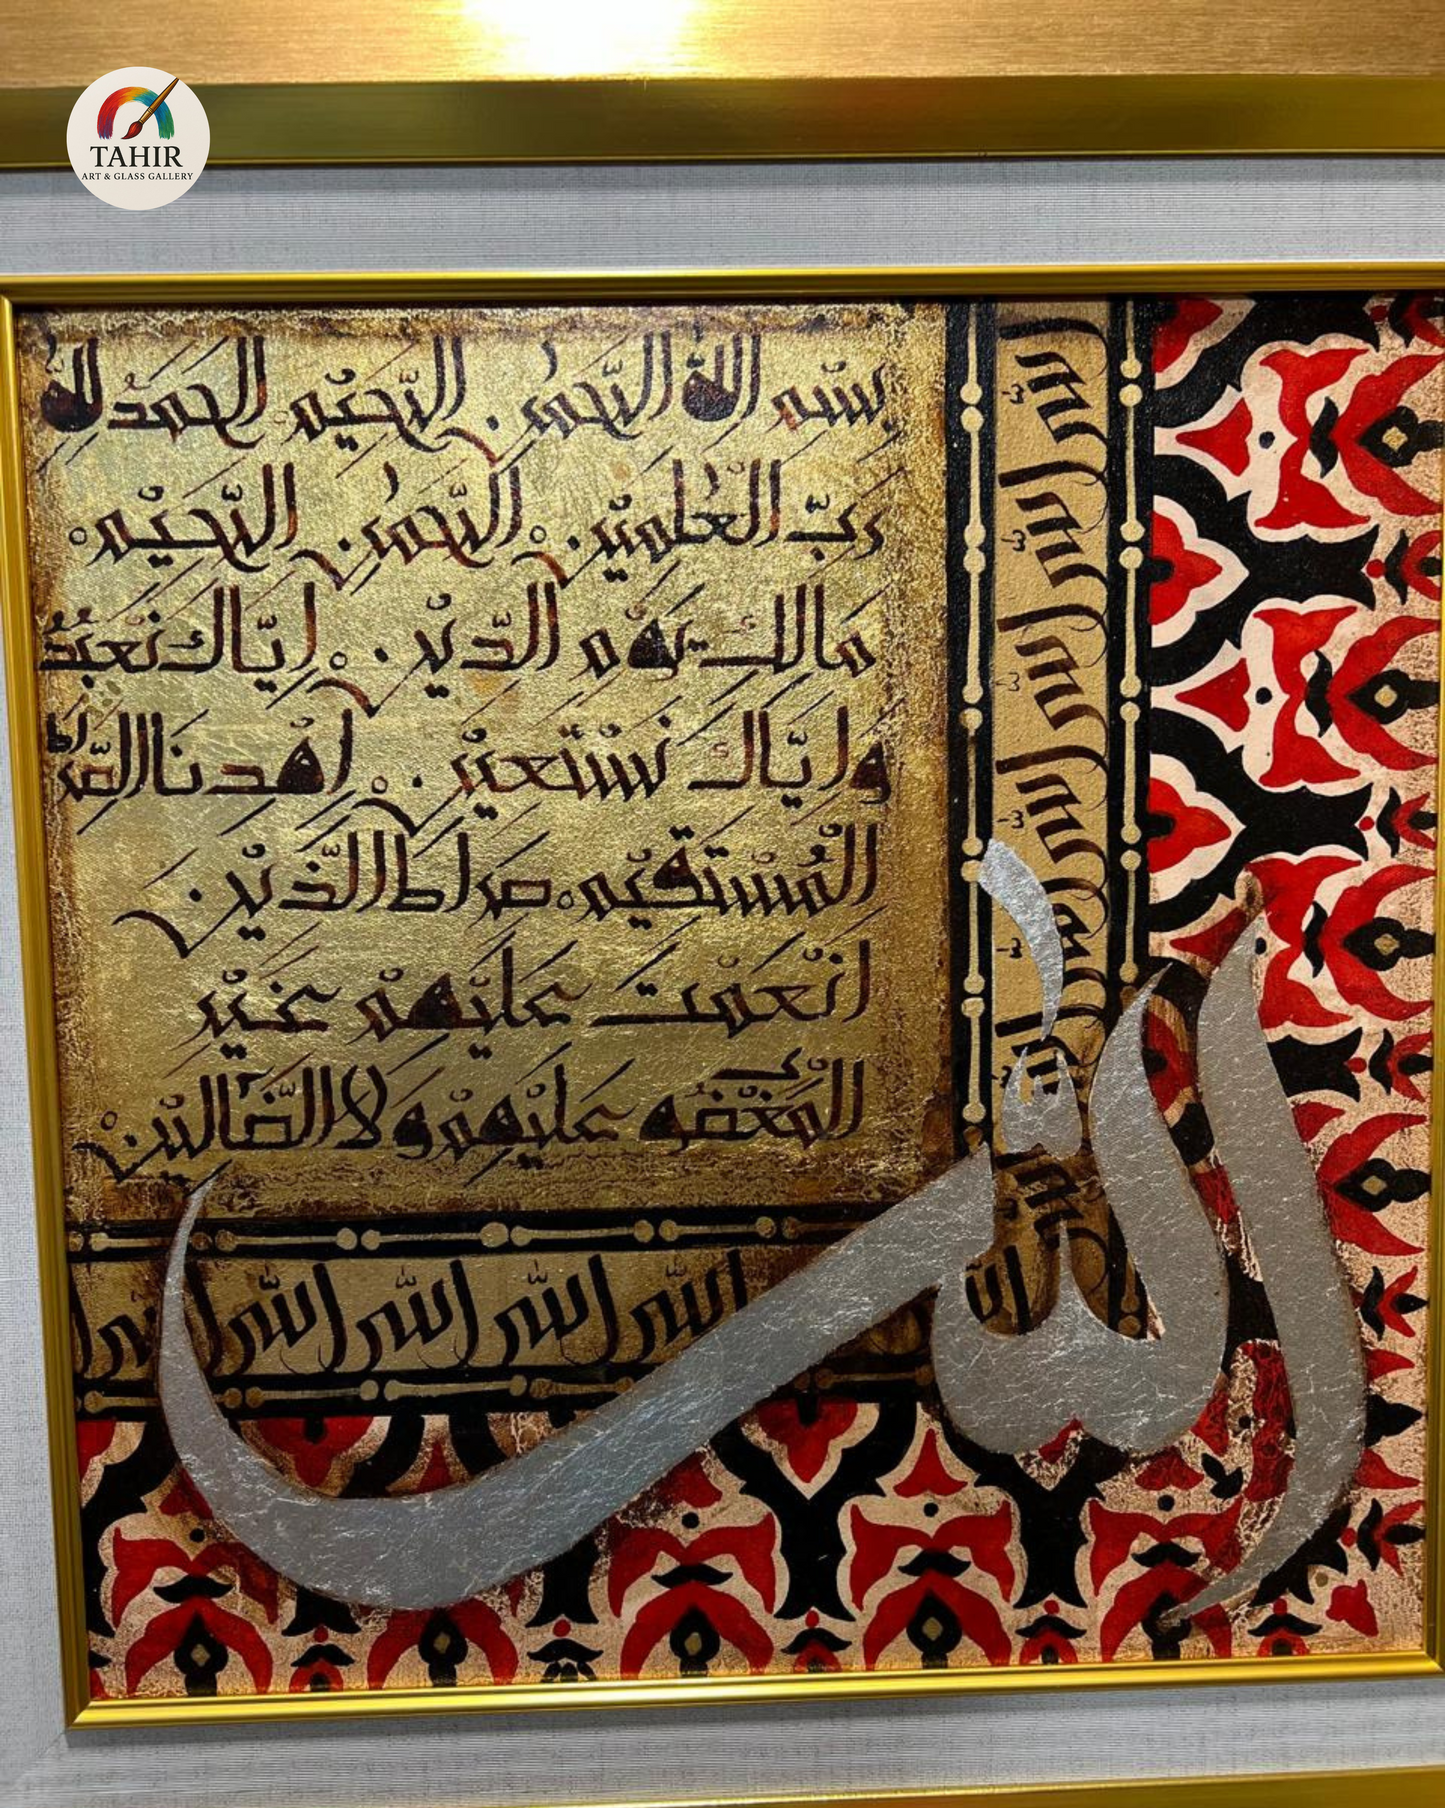 TAHIR
ART & GLASS GALLERY
بسم الله الرحمن الرحيم الحمد لله
رب العلمين الرحمن الرحيم
مالك يوم الدين اياك نعبد
واياك نستعين اهدنا الصراط
المستقيم صراط الذين
انعمت عليهم غير
المغضوب عليهم ولا الضالين
الله
الله الله الله الله الله الله الله
الله الله الله الله